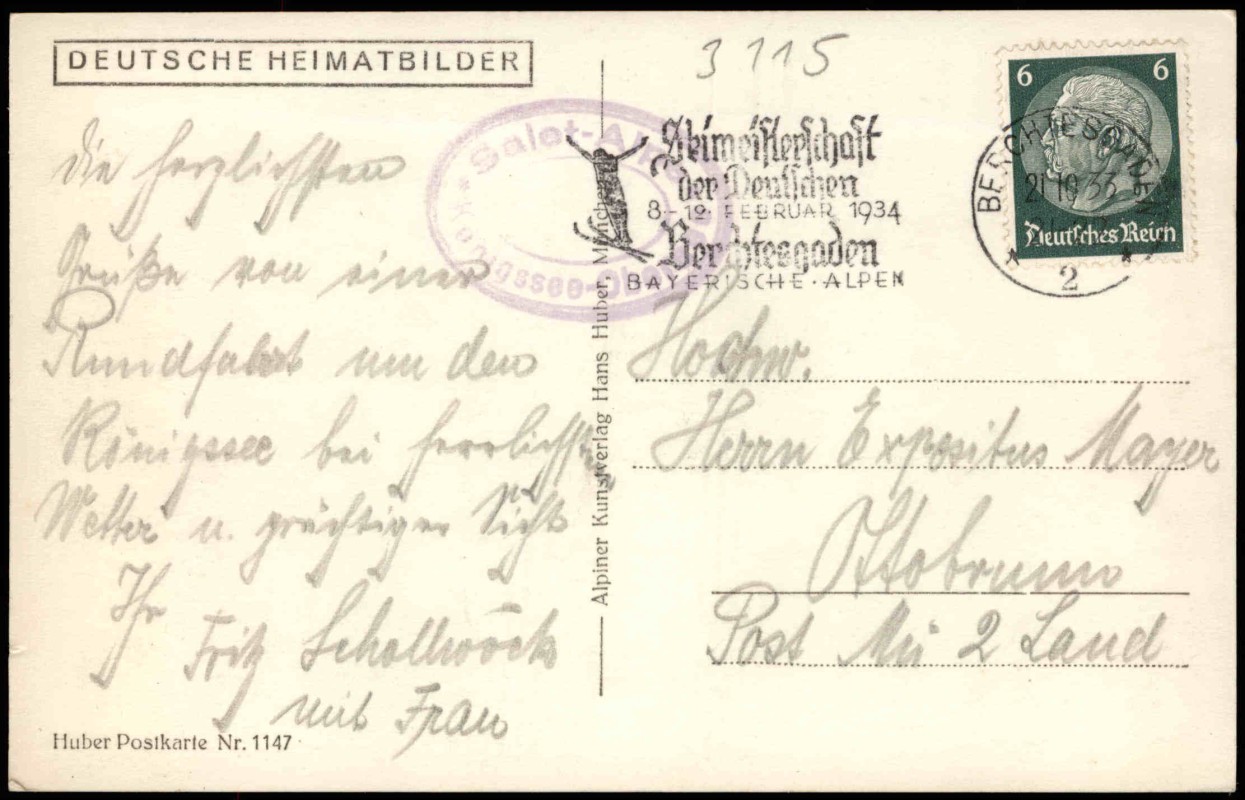 DEUTSCHE HEIMATBILDER
3115
6 6
Deutsches Reich
BERCHTESGADEN
21.10.33
2
Skimeisterschaft
der Deutschen
8-12. FEBRUAR 1934
Berchtesgaden
BAYERISCHE · ALPEN
Salet-Alm
Königssee-Ober
die herzlichsten
Grüße von einer
Rundfahrt um den
Königssee bei herrlichstem
Wetter u. prächtiger Sicht
Ihr
Fritz Schollwöck
mit Frau
Huber Postkarte Nr. 1147
Alpiner Kunstverlag Hans Huber München
Hochw.
Herrn Expositus Mayer
Ottobrunn
Post Mü 2 Land